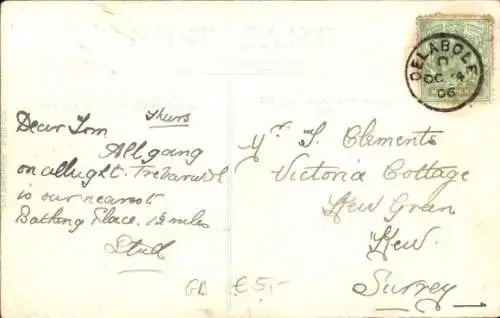 DELABOLE
D
OC 4
06
Thurs
Dear Tom
All going
on allright. Trebarwith
is our nearest
Bathing Place. 1½ miles
Mr T. Clements
Victoria Cottage
Kew Green
Kew.
Surrey
GR £5,-